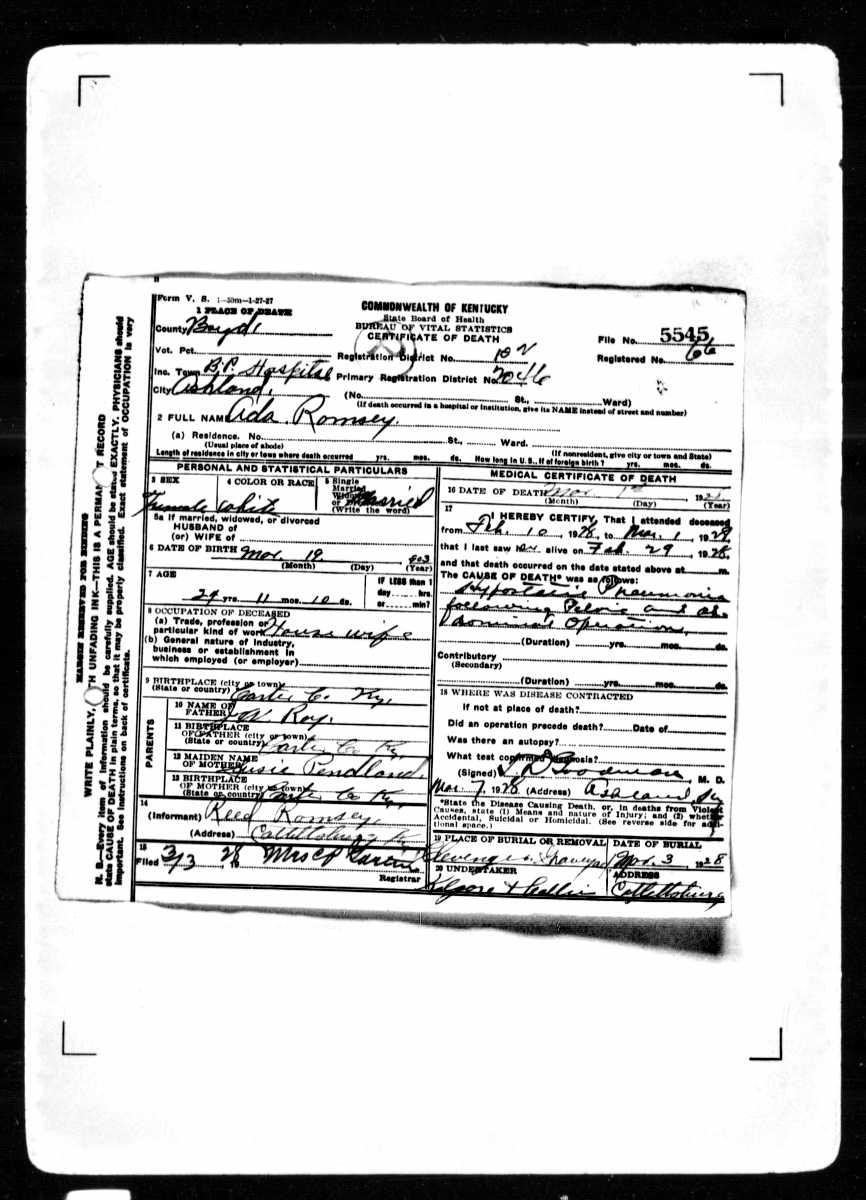 Form V. S. 1—50m—1-27-27
1 PLACE OF DEATH
County Boyd
Vot. Pct.
Inc. Town B.P. Hospital
City Ashland,
COMMONWEALTH OF KENTUCKY
State Board of Health
BUREAU OF VITAL STATISTICS
CERTIFICATE OF DEATH
Registration District No. 102
Primary Registration District No. 2046
File No. 5545
Registered No. 66
(No. St., Ward)
(If death occurred in a hospital or institution, give its NAME instead of street and number)
2 FULL NAME Ada Romsey.
(a) Residence. No. St., Ward.
(Usual place of abode) (If nonresident, give city or town and State)
Length of residence in city or town where death occurred yrs. mos. ds. How long in U. S., if of foreign birth? yrs. mos. ds.
PERSONAL AND STATISTICAL PARTICULARS
3 SEX 4 COLOR OR RACE 5 Single
Married
Widowed
or
(Write the word)
Female White Married
5a If married, widowed, or divorced
HUSBAND of
(or) WIFE of
6 DATE OF BIRTH Mar. 19, 903
(Month) (Day) (Year)
7 AGE
IF LESS than 1
day hrs.
or min?
24 yrs. 11 mos. 10 ds.
8 OCCUPATION OF DECEASED
(a) Trade, profession or
particular kind of work House wife
(b) General nature of industry,
business or establishment in
which employed (or employer)
9 BIRTHPLACE (city or town)
(State or country) Carter C. Ky.
PARENTS
10 NAME OF
FATHER Roy.
11 BIRTHPLACE
OF FATHER (city or town)
(State or country) Carter Co Ky
12 MAIDEN NAME
OF MOTHER Susie Pendland
13 BIRTHPLACE
OF MOTHER (city or town)
(State or country) Carter Co Ky.
14
(Informant) Reed Romsey,
(Address) Catlettsburg Ky
15
Filed 3/3 28 Mrs
Registrar
MEDICAL CERTIFICATE OF DEATH
16 DATE OF DEATH Mar 1st 192
(Month) (Day) (Year)
17
I HEREBY CERTIFY, That I attended deceased
from Feb. 10, 1928, to Mar. 1, 1928,
that I last saw her alive on Feb. 29, 1928,
and that death occurred on the date stated above at m.
The CAUSE OF DEATH* was as follows:
Hypostatic Pneumonia
following Pelvic and ab-
dominal Operation,
(Duration) yrs. mos. ds.
Contributory
(Secondary)
(Duration) yrs. mos. ds.
18 WHERE WAS DISEASE CONTRACTED
If not at place of death?
Did an operation precede death? Date of
Was there an autopsy?
What test confirmed diagnosis?
(Signed) M. D.
Mar. 7, 1928 (Address) Ashland, Ky
*State the Disease Causing Death, or, in deaths from Violent
Causes, state (1) Means and nature of Injury; and (2) whether
Accidental, Suicidal or Homicidal. (See reverse side for addi-
tional space.)
19 PLACE OF BURIAL OR REMOVAL DATE OF BURIAL
Mar. 3, 1928
20 UNDERTAKER ADDRESS
Kilgore & Collier Catlettsburg
MARGIN RESERVED FOR BINDING
WRITE PLAINLY, UNFADING INK—THIS IS A PERMANENT RECORD
N. B.—Every item of information should be carefully supplied. AGE should be stated EXACTLY. PHYSICIANS should
state CAUSE OF DEATH in plain terms, so that it may be properly classified. Exact statement of OCCUPATION is very
important. See instructions on back of certificate.